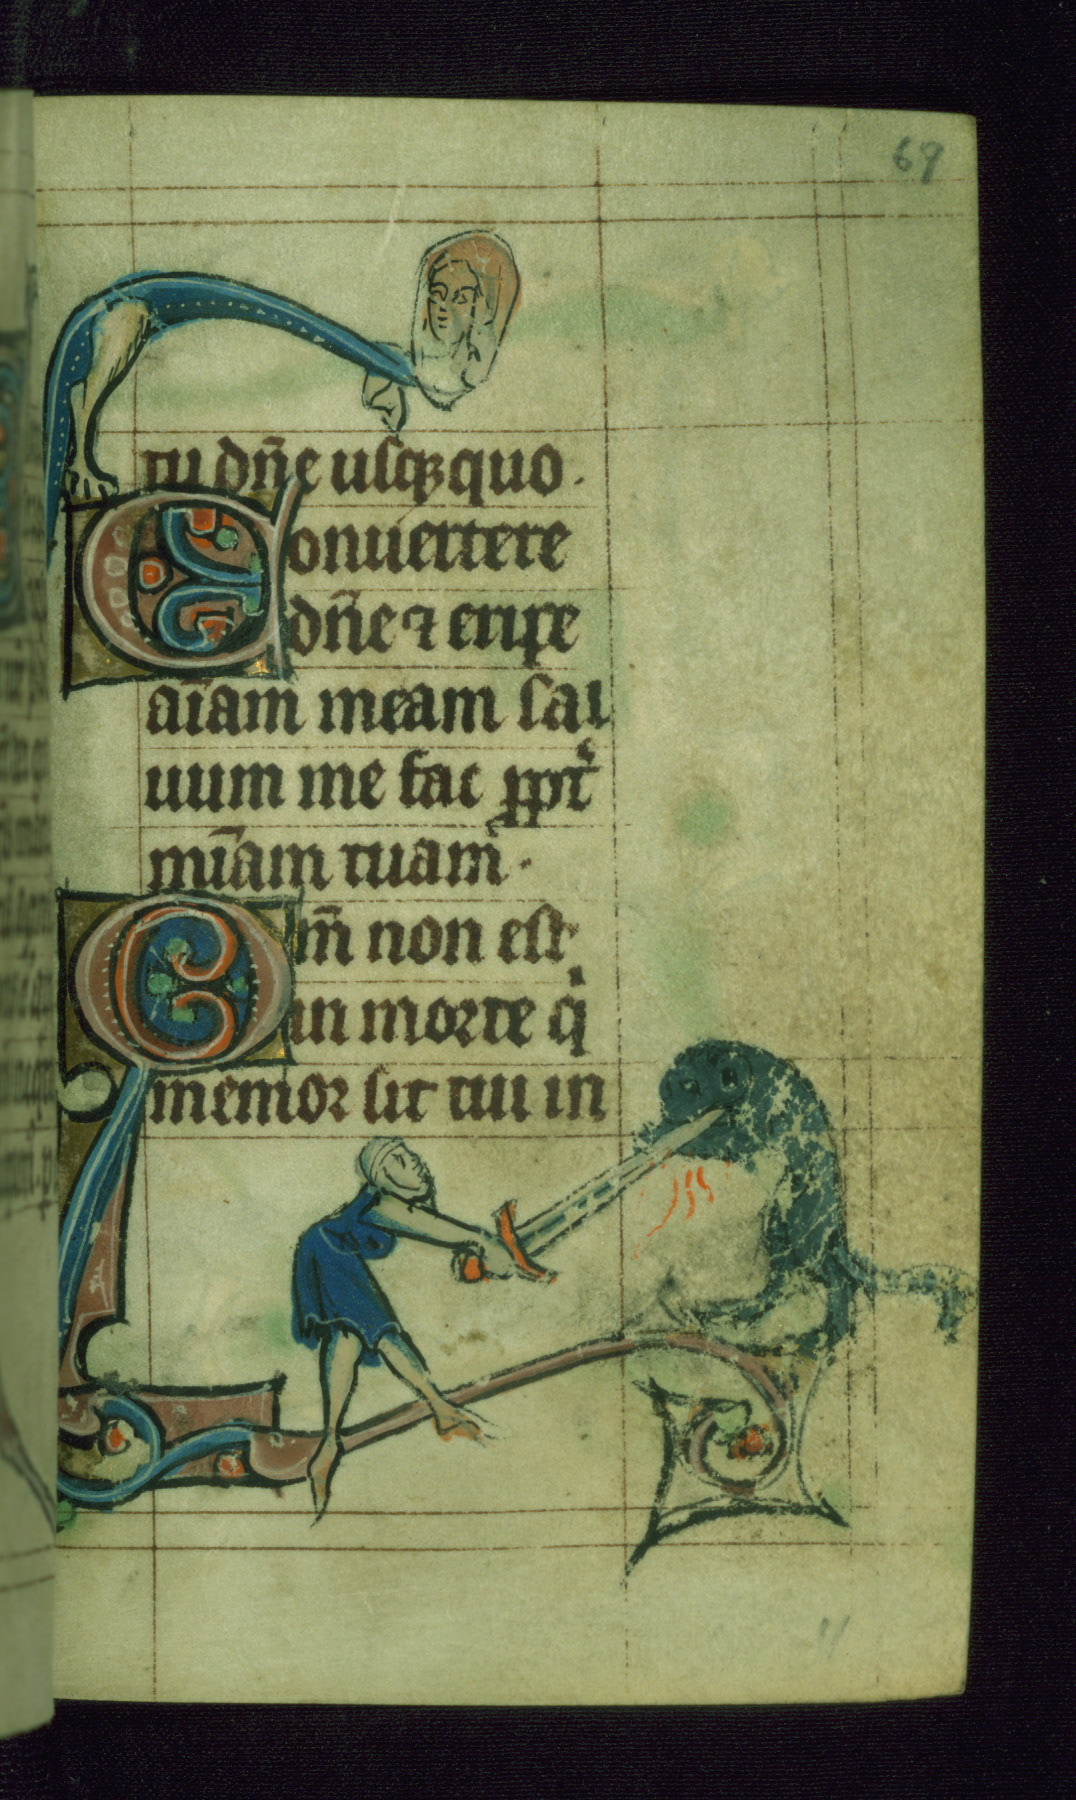 69
tu dn̄e usqꝫ quo.
Conuertere
dn̄e ⁊ eripe
aīam meam sal
uum me fac ꝓpt᷑
mīam tuam.
Qm̄ non est
in morte qi
memor sit tui in